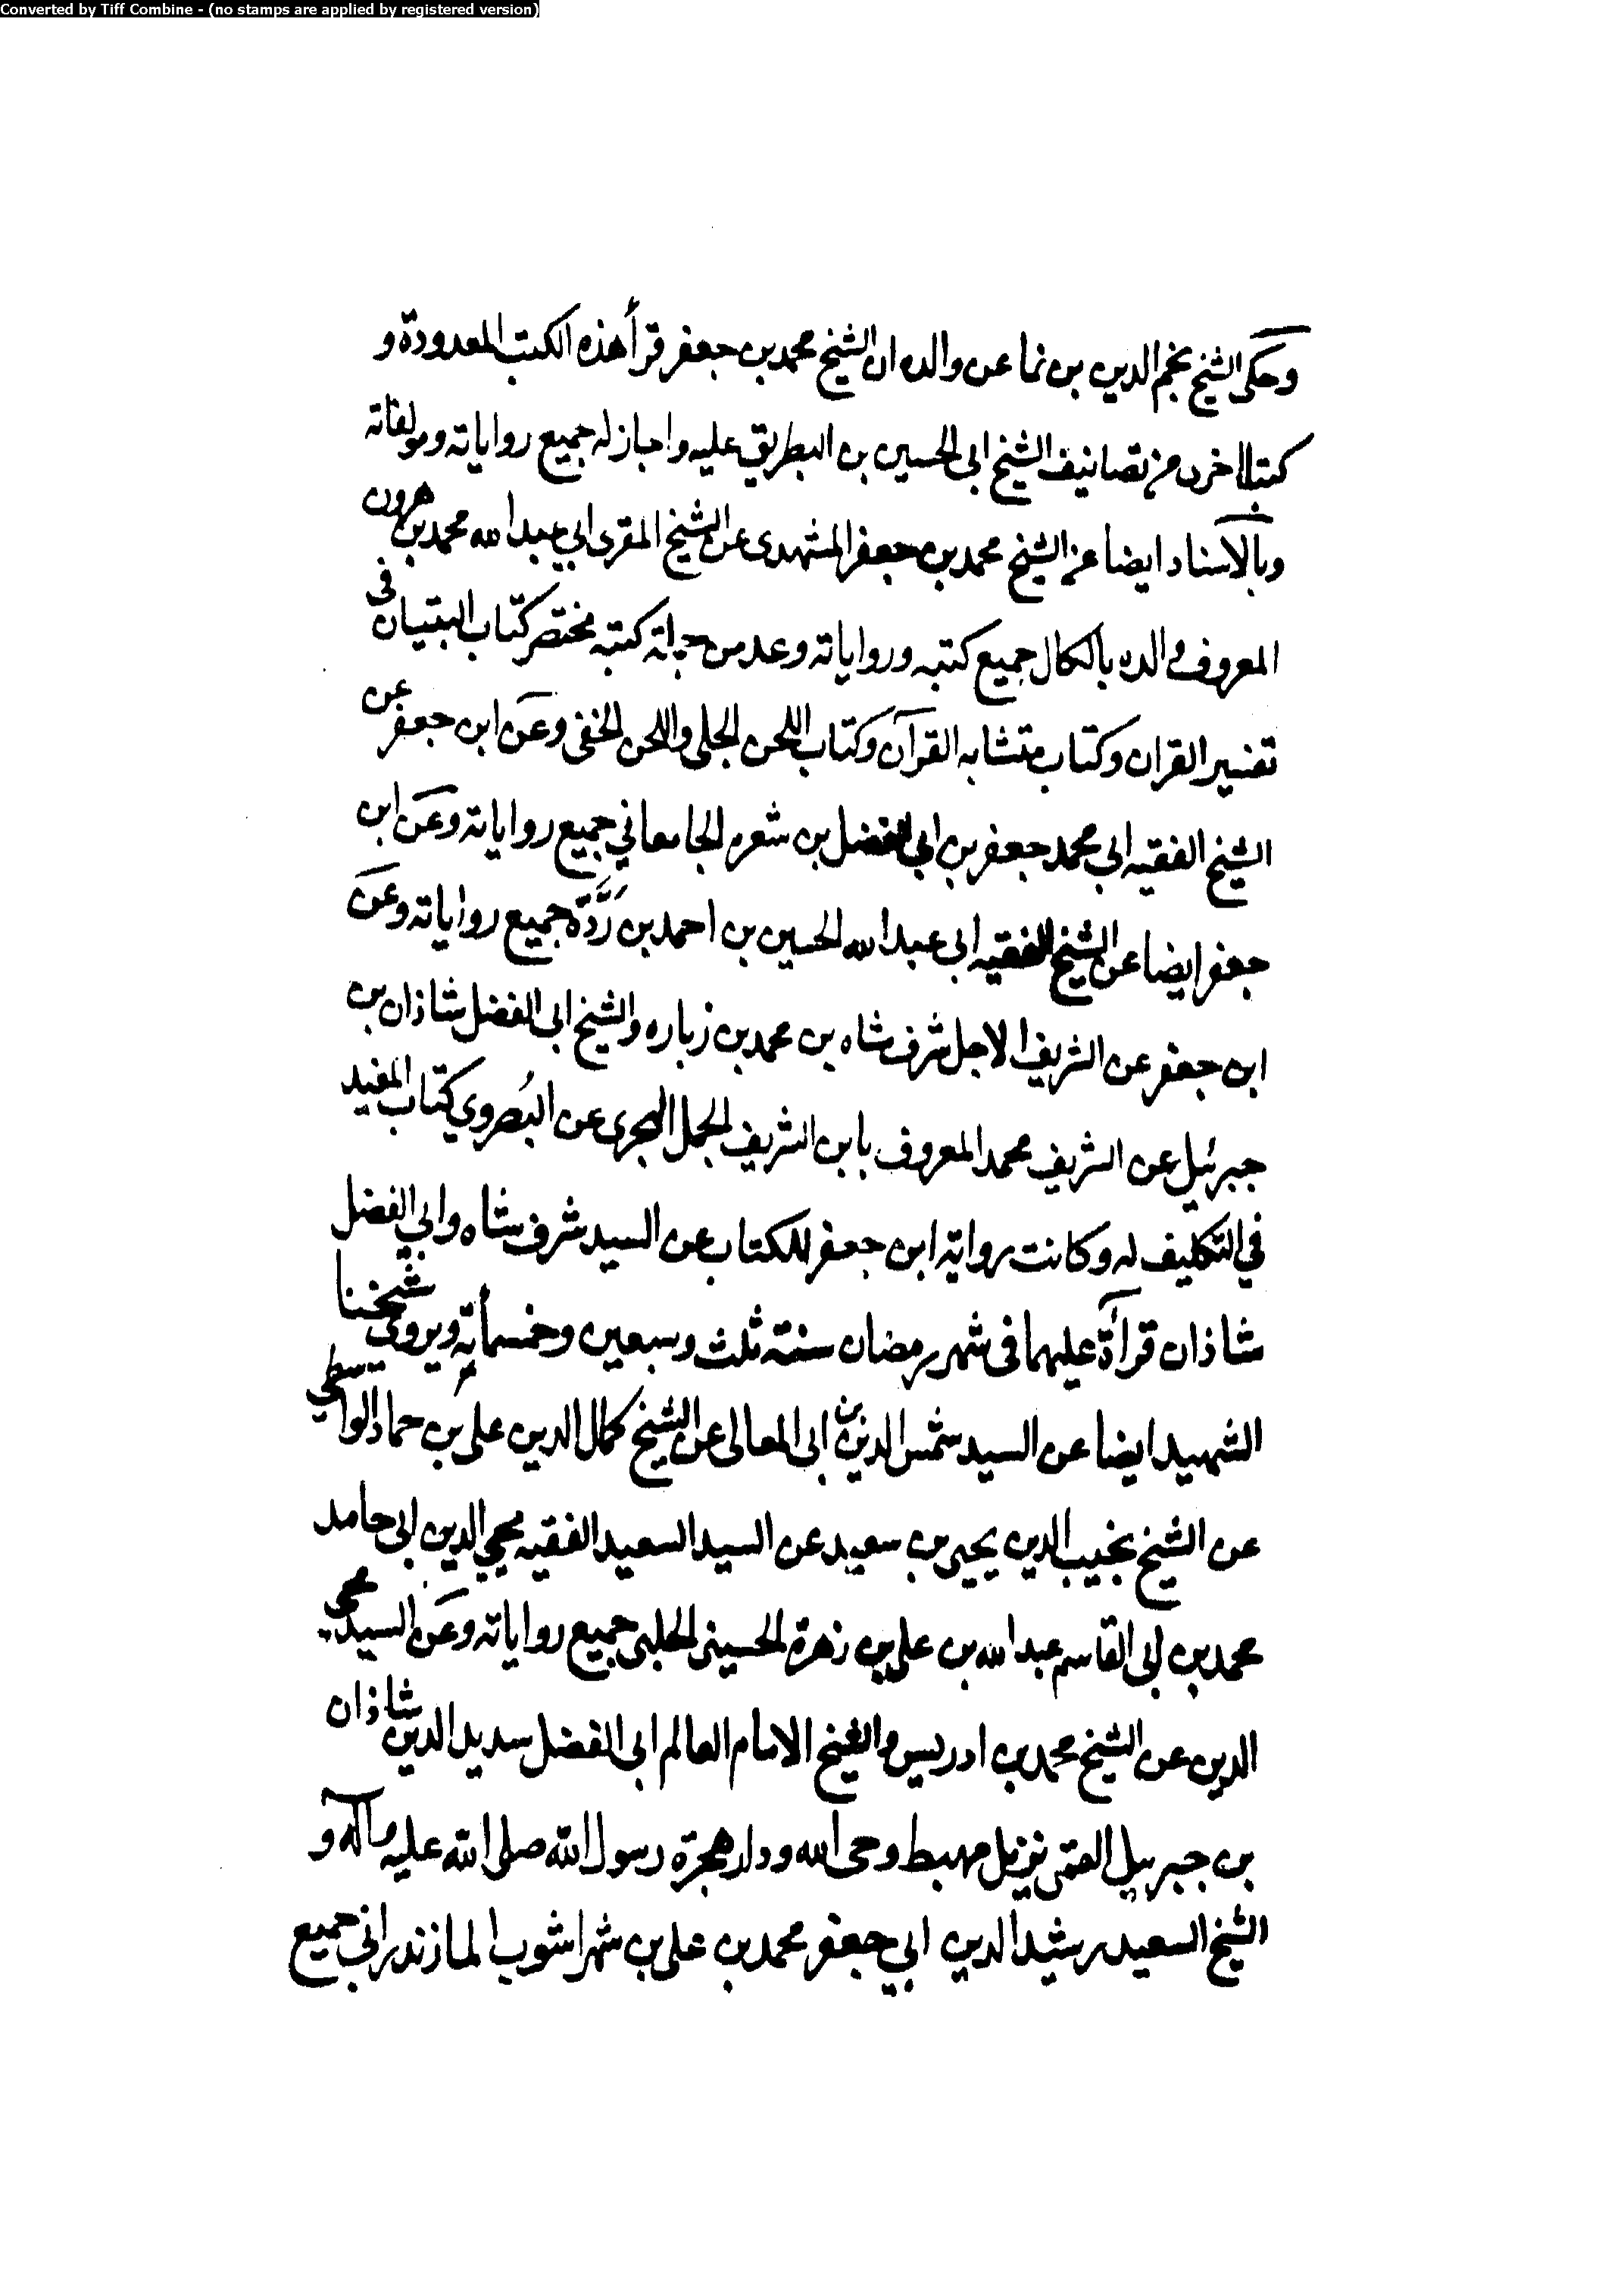 Converted by Tiff Combine - (no stamps are applied by registered version)
وحكى الشيخ نجم الدين بن نما عن والده ان الشيخ محمد بن جعفر قرأ هذه الكتب المعدودة و
كتبا اخرى من تصانيف الشيخ ابى الحسين بن البطريق عليه واجاز له جميع رواياته ومولفاته
وبالاسناد ايضا عن الشيخ محمد بن جعفر المشهدى عن الشيخ المقرى ابي عبد الله محمد بن هرون
المعروف والده بالكال جميع كتبه ورواياته وعد من جملة كتبه مختصر كتاب التبيان فى
تفسير القران وكتاب متشابه القرآن وكتاب اللحن الجلى واللحن الخفى وعن ابن جعفر عن
الشيخ الفقيه ابي محمد جعفر بن ابي الفضل بن شعره الجامعاني جميع رواياته وعن ابن
جعفر ايضا عن الشيخ الفقيه ابى عبد الله الحسين بن احمد بن رَدَّة جميع رواياته وعن
ابن جعفر عن الشريف الاجل شرف شاه بن محمد بن زباره والشيخ ابى الفضل شاذان بن
جبرئيل عن الشريف محمد المعروف بابن الشريف الجمل البحرى عن البُصروي كتاب المفيد
في التكليف له وكانت رواية ابن جعفر للكتاب عن السيد شرف شاه وابي الفضل
شاذان قرأة عليهما فى شهر رمضان سنة ثلث وسبعين وخمسمأية ويروى شيخنا
الشهيد ايضا عن السيد شمس الدين بن ابى المعالى عن الشيخ كمال الدين على بن حماد الواسطي
عن الشيخ نجيب الدين يحيى بن سعيد عن السيد السعيد الفقيه محيي الدين ابى حامد
محمد بن ابى القاسم عبد الله بن على بن زهرة الحسينى الحلبى جميع رواياته وعن السيد محيي
الدين عن الشيخ محمد بن ادريس والشيخ الامام العالم ابى الفضل سديد الدين شاذان
بن جبرييل القمى نزيل مهبط وحى الله ودار هجرة رسول الله صلى الله عليه وآله و
الشيخ السعيد رشيد الدين ابي جعفر محمد بن على بن شهراشوب المازندراني جميع